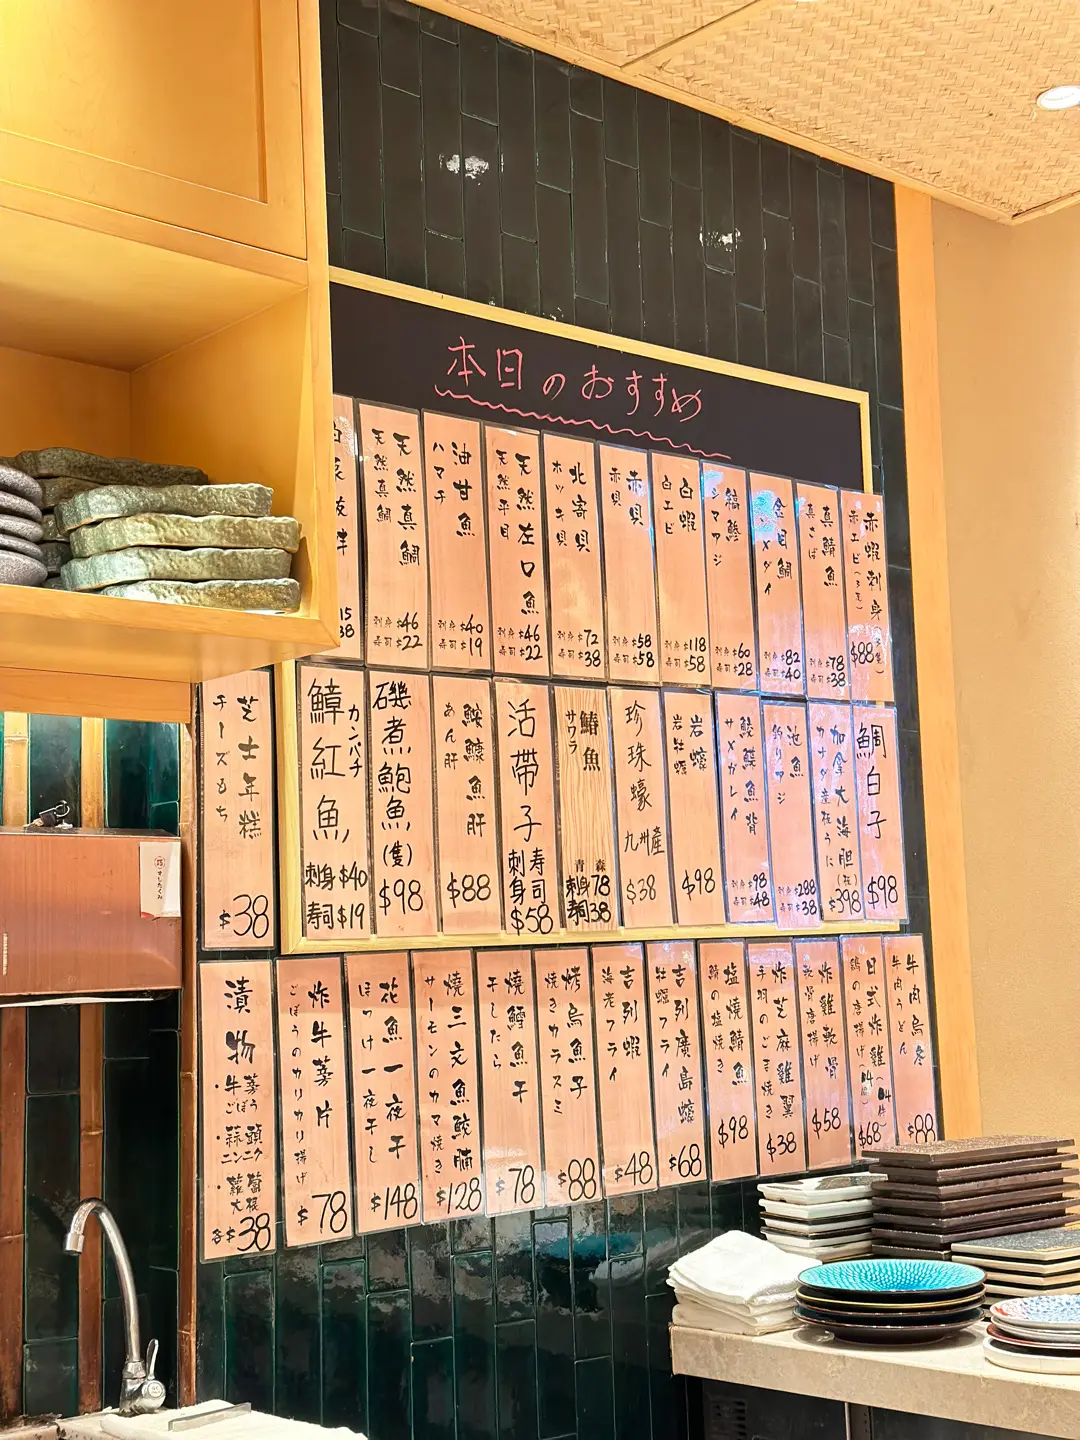 本日のおすすめ
天然真鯛
天然真鯛
刺身$46
寿司$22
油甘魚
ハマチ
刺身$40
寿司$19
天然左口魚
天然平目
刺身$46
寿司$22
北寄貝
ホッキ貝
刺身$72
寿司$38
赤貝
赤貝
刺身$58
寿司$58
白蝦
白エビ
刺身$118
寿司$58
縞鰺
シマアジ
刺身$60
寿司$28
金目鯛
刺身$82
寿司$40
真鯖魚
真さば
刺身$78
寿司$38
赤蝦刺身
赤エビ
$88
芝士年糕
チーズもち
$38
鱆紅魚
カンパチ
刺身$40
寿司$19
磯煮鮑魚(隻)
$98
鮟鱇魚肝
あん肝
$88
活帶子
寿司
刺身
$58
鰆魚
サワラ
青森
刺身78
寿司38
珍珠蠔
九州産
$38
岩蠔
岩牡蠣
$98
鰈魚背
サメガレイ
刺身$98
寿司$48
池魚
釣りアジ
刺身$288
寿司$38
加拿大海胆
カナダ産
うに
$398
鯛白子
$98
漬物
・牛蒡
ごぼう
・蒜頭
ニンニク
・蘿蔔
大根
各$38
炸牛蒡片
ごぼうのカリカリ揚げ
$78
花魚一夜干
ほっけ一夜干し
$148
燒三文魚鮫腩
サーモンのカマ焼き
$128
燒鱈魚干
干したら
$78
烤烏魚子
焼きカラスミ
$88
吉列蝦
海老フライ
$48
吉列廣島蠔
牡蠣フライ
$68
塩燒鯖魚
鯖の塩焼き
$98
炸芝麻雞翼
手羽のごま焼き
$38
炸雞軟骨
軟骨唐揚げ
$58
日式炸雞
鶏の唐揚げ
$68
牛肉烏冬
牛肉うどん
$88